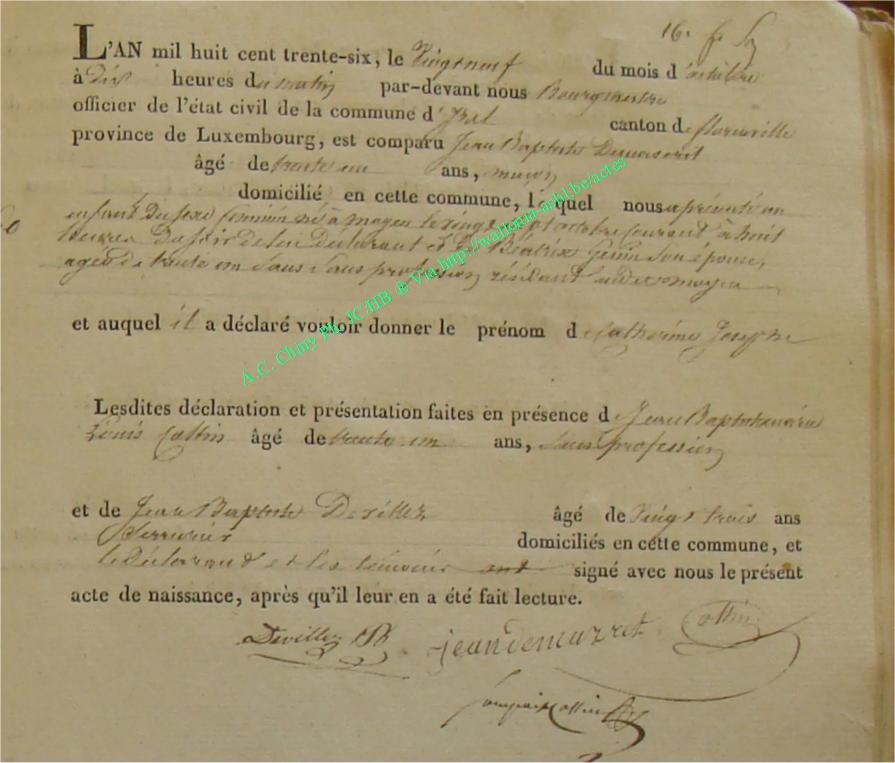 16.
L'AN mil huit cent trente-six, le Vingt neuf du mois d'octobre
à Dix heures du matin par-devant nous Bourgmestre
officier de l'état civil de la commune d'Izel canton de florenville
province de Luxembourg, est comparu Jean Baptiste
âgé de trente un ans, maçon
domicilié en cette commune, lequel nous a présenté un
enfant Du sexe féminin né à moyen le vingt octobre courant à huit
heures Du soir de lui Déclarant et de Béatrix son épouse,
agée de trente un ans Sans profession résidant audit moyen
et auquel il a déclaré vouloir donner le prénom de Catherine Josephe
Lesdites déclaration et présentation faites en présence de Jean Baptiste
Louis Collin âgé de trente un ans, Sans profession
et de Jean Baptiste Devillez âgé de Vingt trois ans
Serrurier domiciliés en cette commune, et
le Déclarant et les témoins ont signé avec nous le présent
acte de naissance, après qu'il leur en a été fait lecture.
Devillez JB jean demazret Collin
Collin
A.C. Chiny Ph. ICAHB ® Via http://wallonia-asbl.be/actes